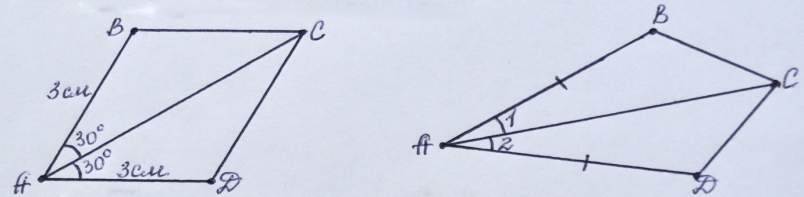 B C
3см
30°
30°
A 3см D
B
C
1
A 2
D